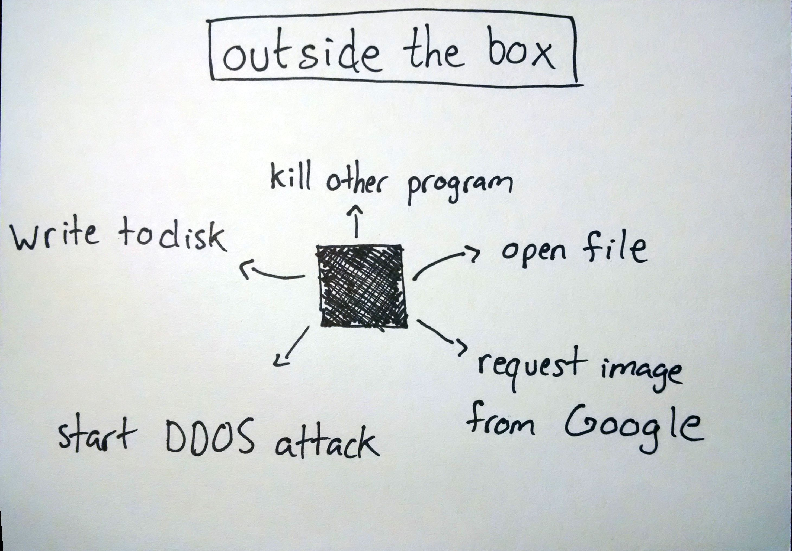 outside the box
kill other program
write to disk
open file
request image
from Google
start DDOS attack